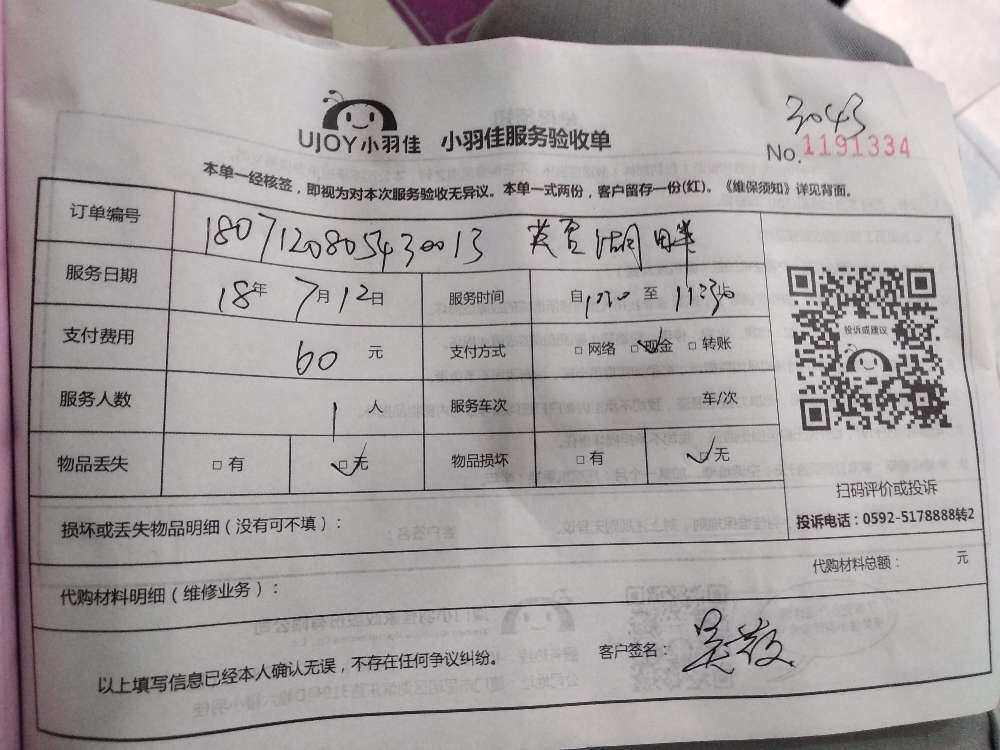 3043
UJOY小羽佳 小羽佳服务验收单
No.1191334
本单一经核签，即视为对本次服务验收无异议。本单一式两份，客户留存一份(红)。《维保须知》详见背面。
订单编号 1807120805430013 湖畔
服务日期 18年 7月 12日 服务时间 自 1030 至 11:30
支付费用 60 元 支付方式 □网络 □现金 □转账
服务人数 1 人 服务车次 车/次
物品丢失 □有 □无 物品损坏 □有 □无
投诉或建议
扫码评价或投诉
投诉电话：0592-5178888转2
损坏或丢失物品明细（没有可不填）：
代购材料明细（维修业务）： 代购材料总额： 元
以上填写信息已经本人确认无误，不存在任何争议纠纷。 客户签名： 吴